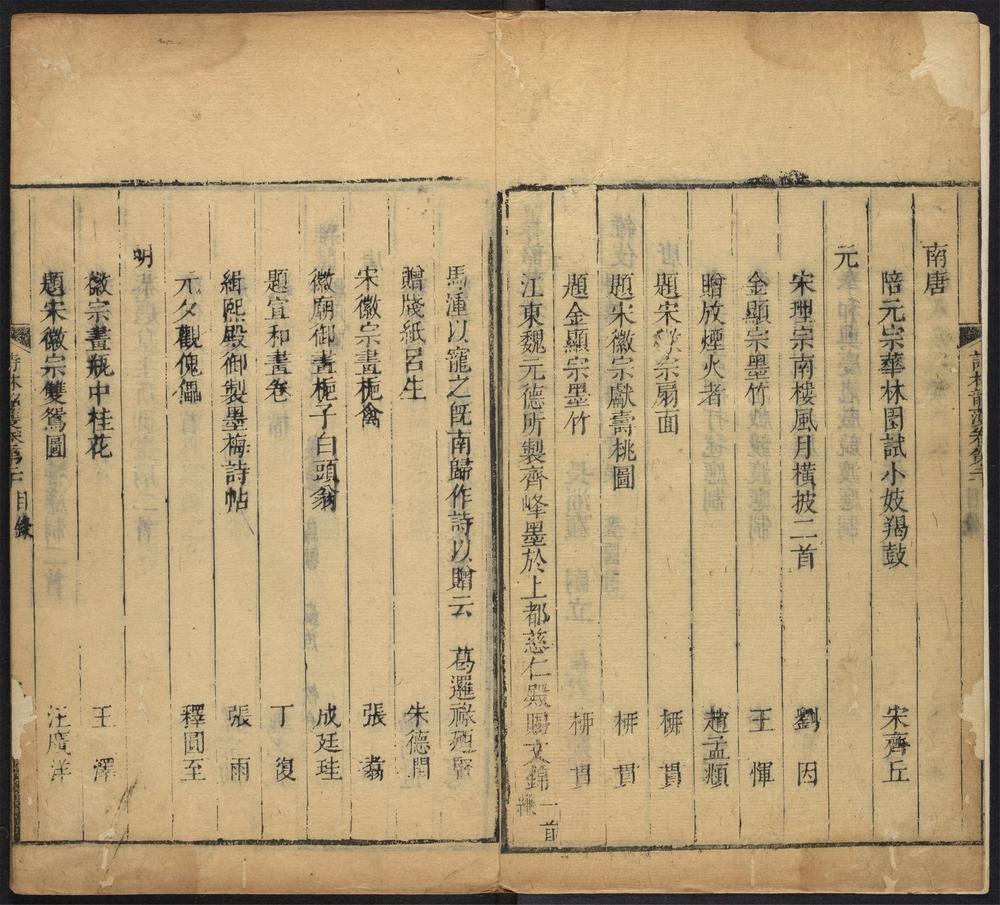 南唐
陪元宗華林園試小妓羯鼓 宋齊丘
元
宋理宗南樓風月橫披二首 劉因
金顯宗墨竹 王惲
贈放煙火者 趙孟頫
題宋 宗扇面 柳貫
題宋徽宗獻壽桃圖 柳貫
題金顯宗墨竹 柳貫
江東魏元德所製齊峰墨於上都慈仁殿賜文錦 一首
馬湩以寵之既南歸作詩以贈云 葛邏祿迺賢
贈牋紙呂生 朱德閏
宋徽宗畫梔禽 張翥
徽廟御畫梔子白頭翁 成廷珪
題宣和畫卷 丁復
緝熙殿御製墨梅詩帖 張雨
元夕觀傀儡 釋圓至
明
徽宗畫瓶中桂花 王澤
題宋徽宗雙鴛圖 汪廣洋
目錄